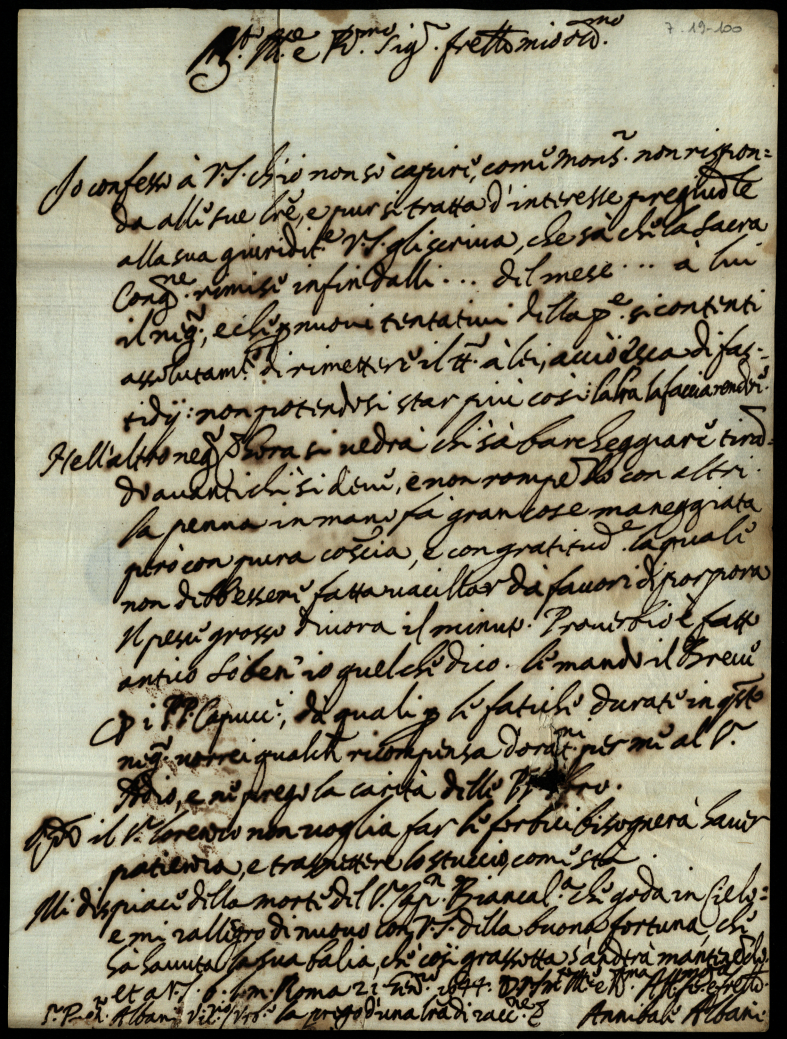 7-19-100
M.to Ill.re e R.mo Sig.r fratello mio oss.mo
Io confesso à V.S. ch'io non sò capire, come Mons.r non rispon=
da alle sue lre, e pur si tratta d'interesse pregiud.le
alla sua giuridit.e V.S. gli scriva, che sà che la Sacra
Cong.ne rimise infin dalli ... del mese ... à lui
il neg.o, e che p nuovi tentativi della p.e si contenti
assolutam.te di rimettere il tt.o à lei, acciò esca di fas=
tidij: non potendosi star più così: la lra la faccia rendere.
Nell'altro neg.o hora si vedrà chi sà barcheggiare tiran=
do avanti chi si deve, e non romperlo con altri.
la penna in mano fà gran cose maneggiata
però con pura coscia, e con gratitud.e la quale
non debb'essere fatta vacillar dà favori di porpora
Il pesce grosso divora il minuto. Proverbio è fatto
antico sò ben'io quel che dico. le mando il Breve
p i PP. Capucc.i, dà quali p le fatiche durate in q.sto
neg.o vorrei qualch ricompensa d'orat.ni per me al S.r
Iddio, e ne prego la carità delle PP. loro.
il S.r Lorenzo non voglia far le forbici bisognerà haver
patienza, e trasmettere lo stuccio, come stà.
Mi dispiace della morte del S.r Cap.n Biancal.a che goda in Cielo=
e mi rallegro di nuovo con V.S. della buona fortuna, che
hà havuta la sua balia, che così grassotta s'andrà mantenendo,
et a V.S. b. l. m. Roma 21 1644. D V.S. M.to Ill.re e R.ma Aff.mo fratello
Albani la prego d'una lra di racc.ne Annibale Albani